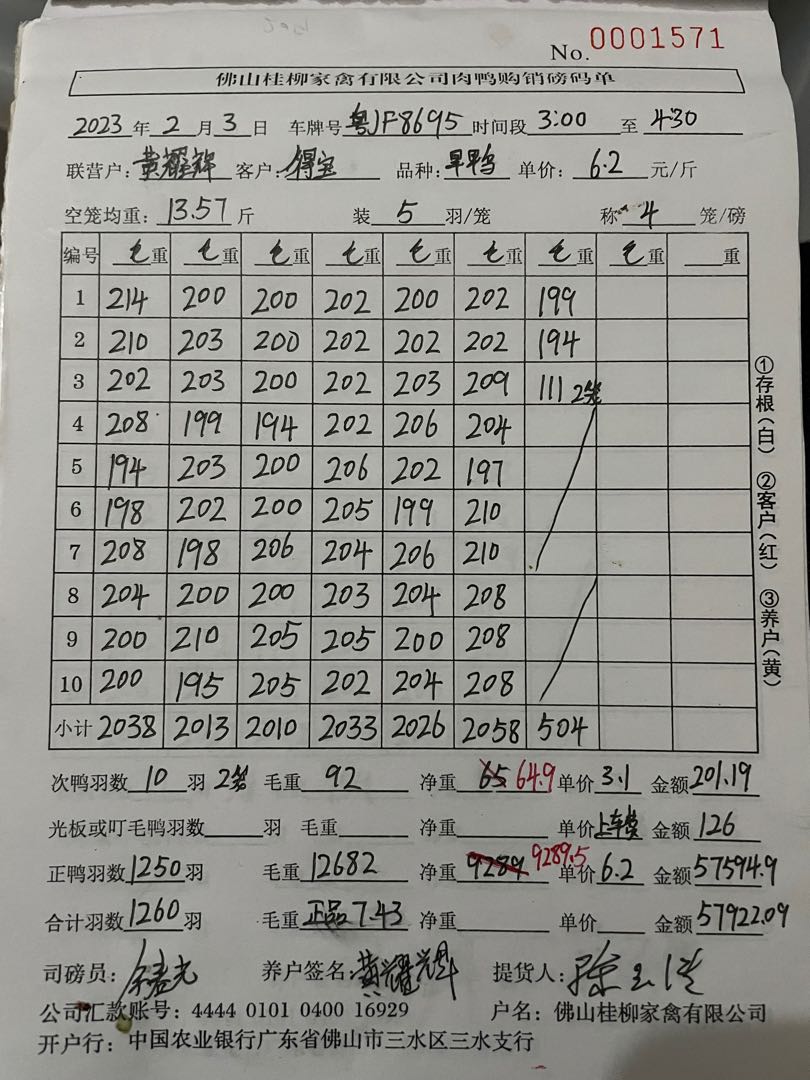 No. 0001571
佛山桂柳家禽有限公司肉鸭购销磅码单
2023年2月3日 车牌号 粤JF8695 时间段 3:00 至 4:30
联营户: 黄耀辉 客户: 得宝 品种: 旱鸭 单价: 6.2 元/斤
空笼均重: 13.57 斤 装 5 羽/笼 称 4 笼/磅
编号 毛重 毛重 毛重 毛重 毛重 毛重 毛重 毛重 重
1 214 200 200 202 200 202 199
2 210 203 200 202 202 202 194
3 202 203 200 202 203 209 111 2笼
4 208 199 194 202 206 204
5 194 203 200 206 202 197
6 198 202 200 205 199 210
7 208 198 206 204 206 210
8 204 200 200 203 204 208
9 200 210 205 205 200 208
10 200 195 205 202 204 208
小计 2038 2013 2010 2033 2026 2058 504
次鸭羽数 10 羽 2笼 毛重 92 净重 65 64.9 单价 3.1 金额 201.19
光板或叮毛鸭羽数 羽 毛重 净重 单价 上车费 金额 126
正鸭羽数 1250 羽 毛重 12682 净重 9289 9289.5 单价 6.2 金额 57594.9
合计羽数 1260 羽 毛重 正品7.43 净重 单价 金额 57922.09
司磅员: 养户签名: 黄耀辉 提货人:
公司汇款账号: 4444 0101 0400 16929 户名: 佛山桂柳家禽有限公司
开户行: 中国农业银行广东省佛山市三水区三水支行
①存根(白) ②客户(红) ③养户(黄)